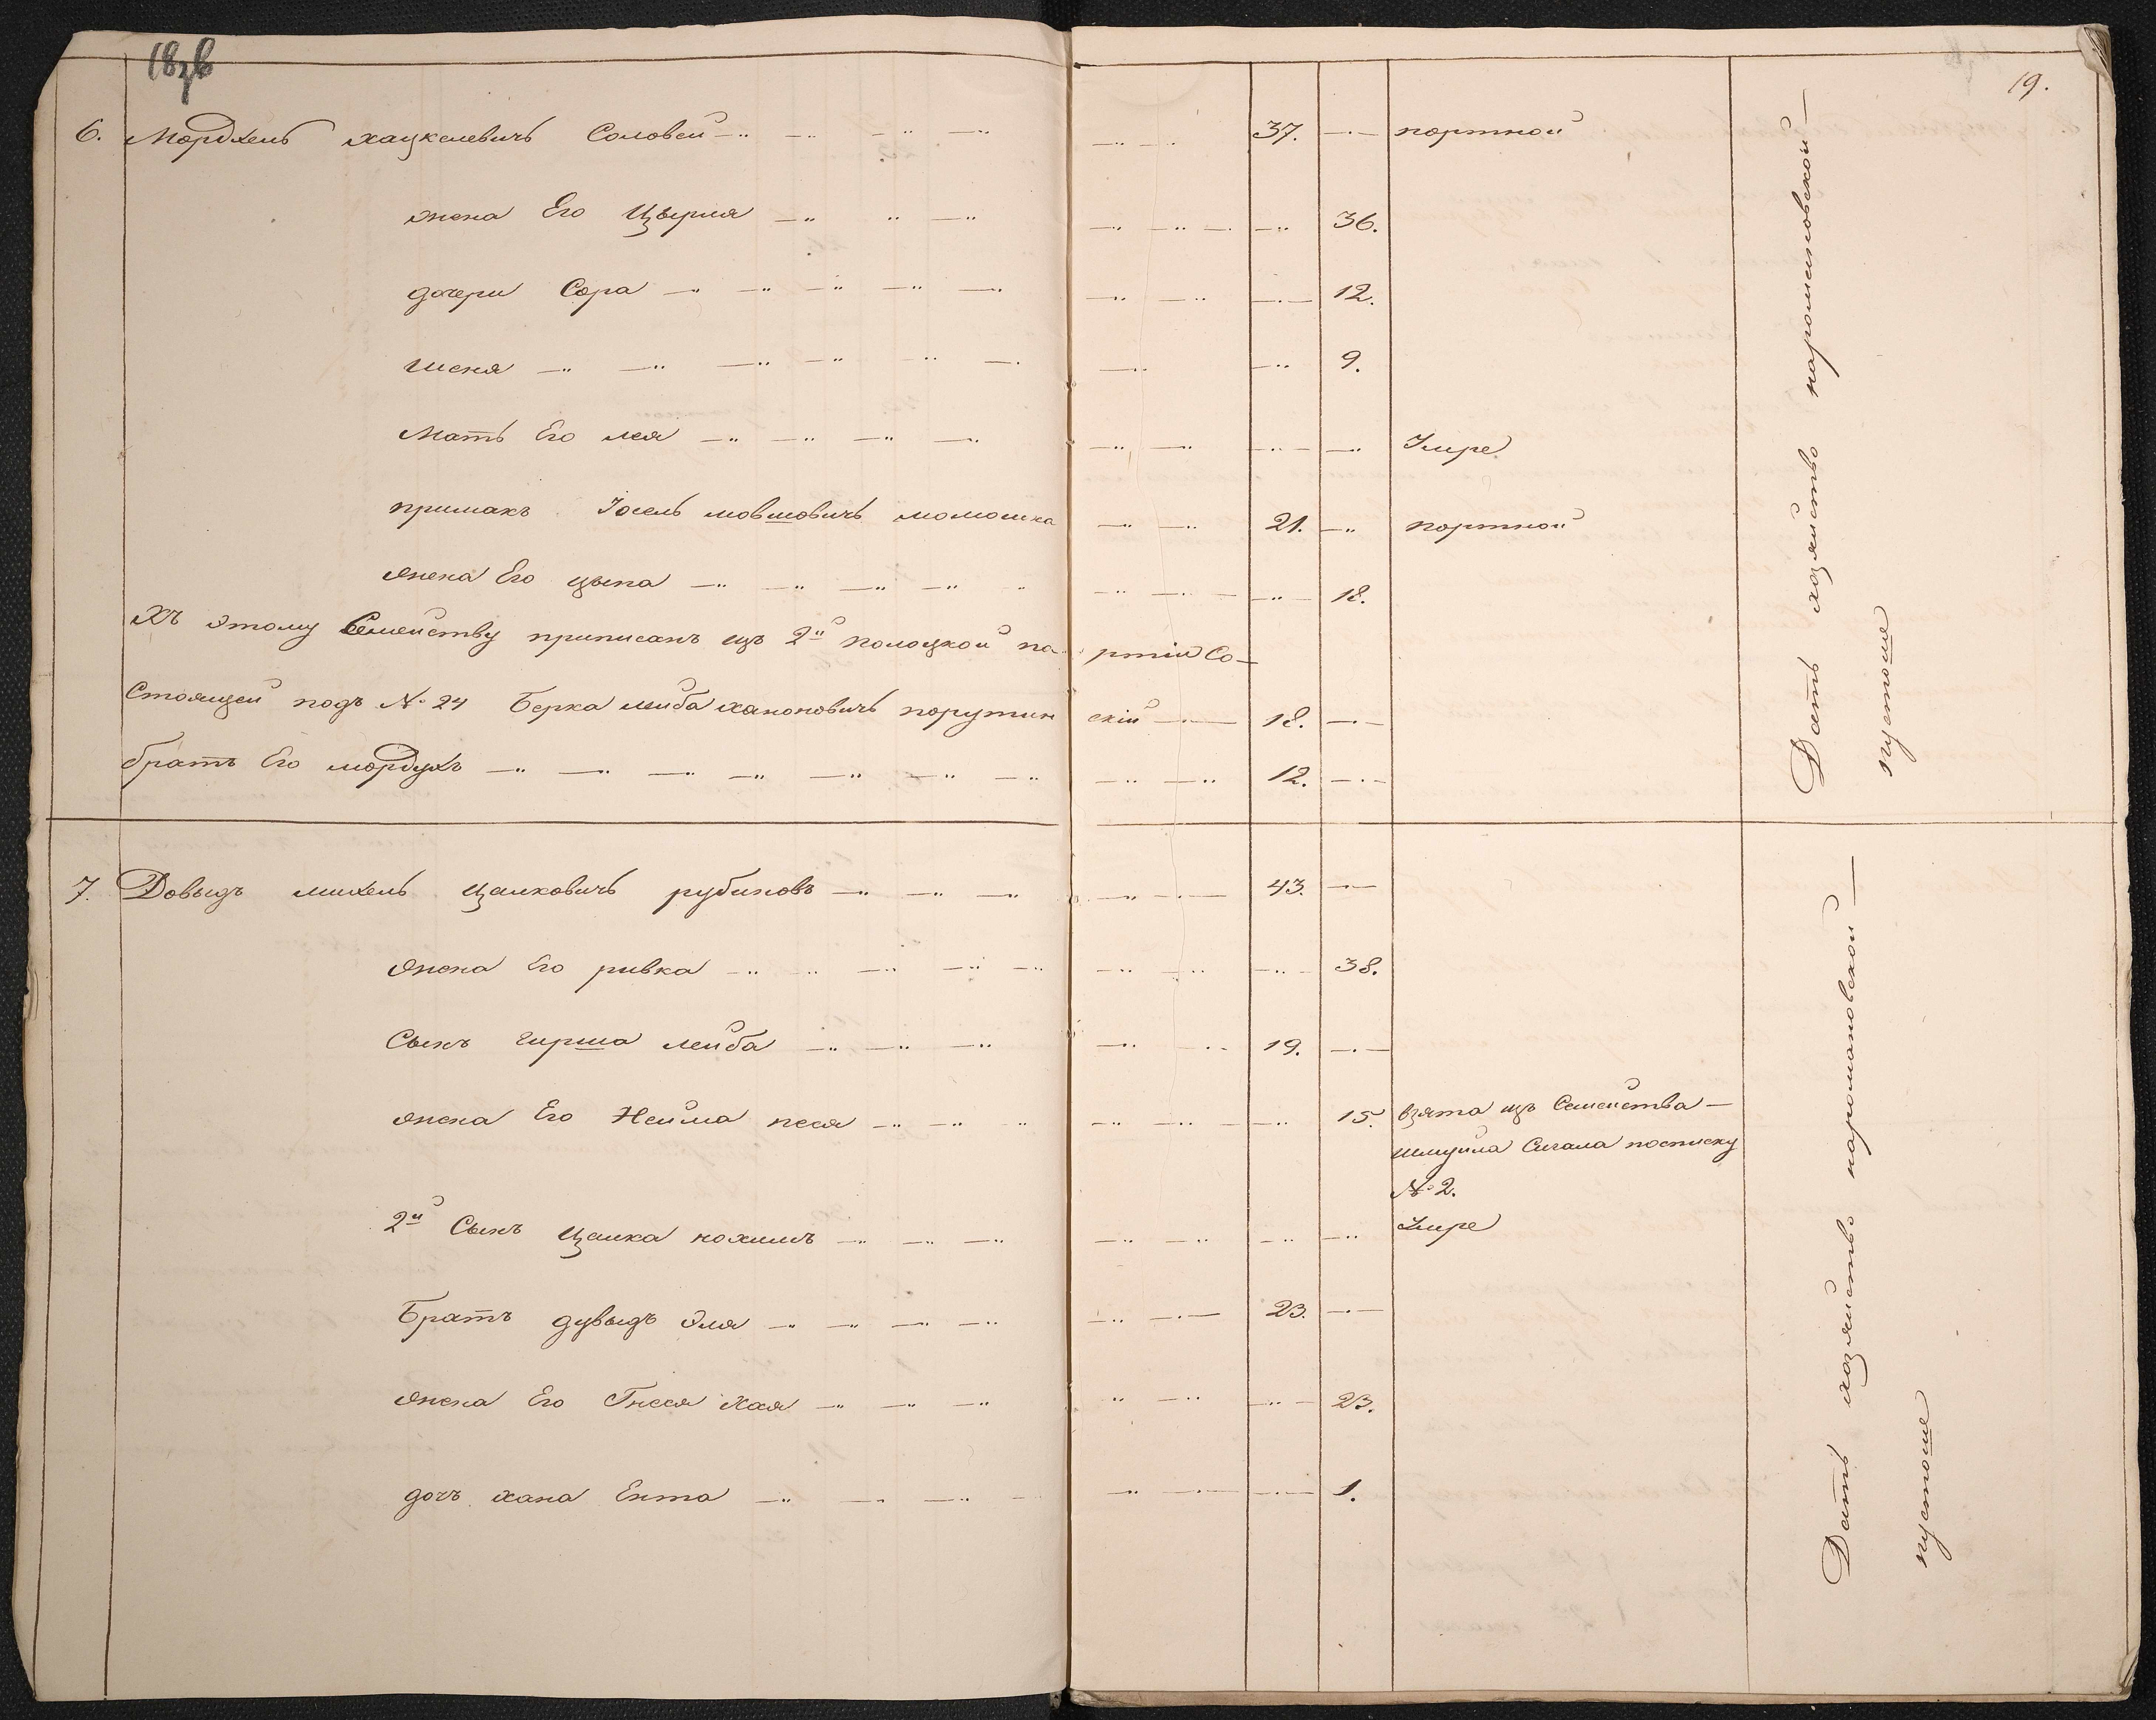 18зв
19.
6. Мордхель хацкелевичь Соловей 37. портной
жена Его Цырля 36.
дочери Сора 12.
шеня 9.
Мать Его лея Умре
примакъ Іосель мовшовичь момошка 21. портной
жена Его цыпа 18.
Къ этому Семейству приписанъ изъ 2й полоцкой партіи Со-
стоящей подъ № 24 Берка лейба ханоновичь порутинскій 18.
братъ Его мордухъ 12.
Дать хозяйство наромановской
пустоше
7. Довыдъ михель цалковичь рубиновъ 43.
жена Его ривка 38.
Сынъ гирша лейба 19.
жена Его Нейма песя 15. взята изъ Семейства
шмуйла Сигала посписку
№ 2.
2й Сынъ цалка нохимъ Умре
Братъ дувыдъ Эля 23.
жена Его Гнеся Хая 23.
дочъ хана Ента 1.
Дать хозяйство наромановской
пустоше